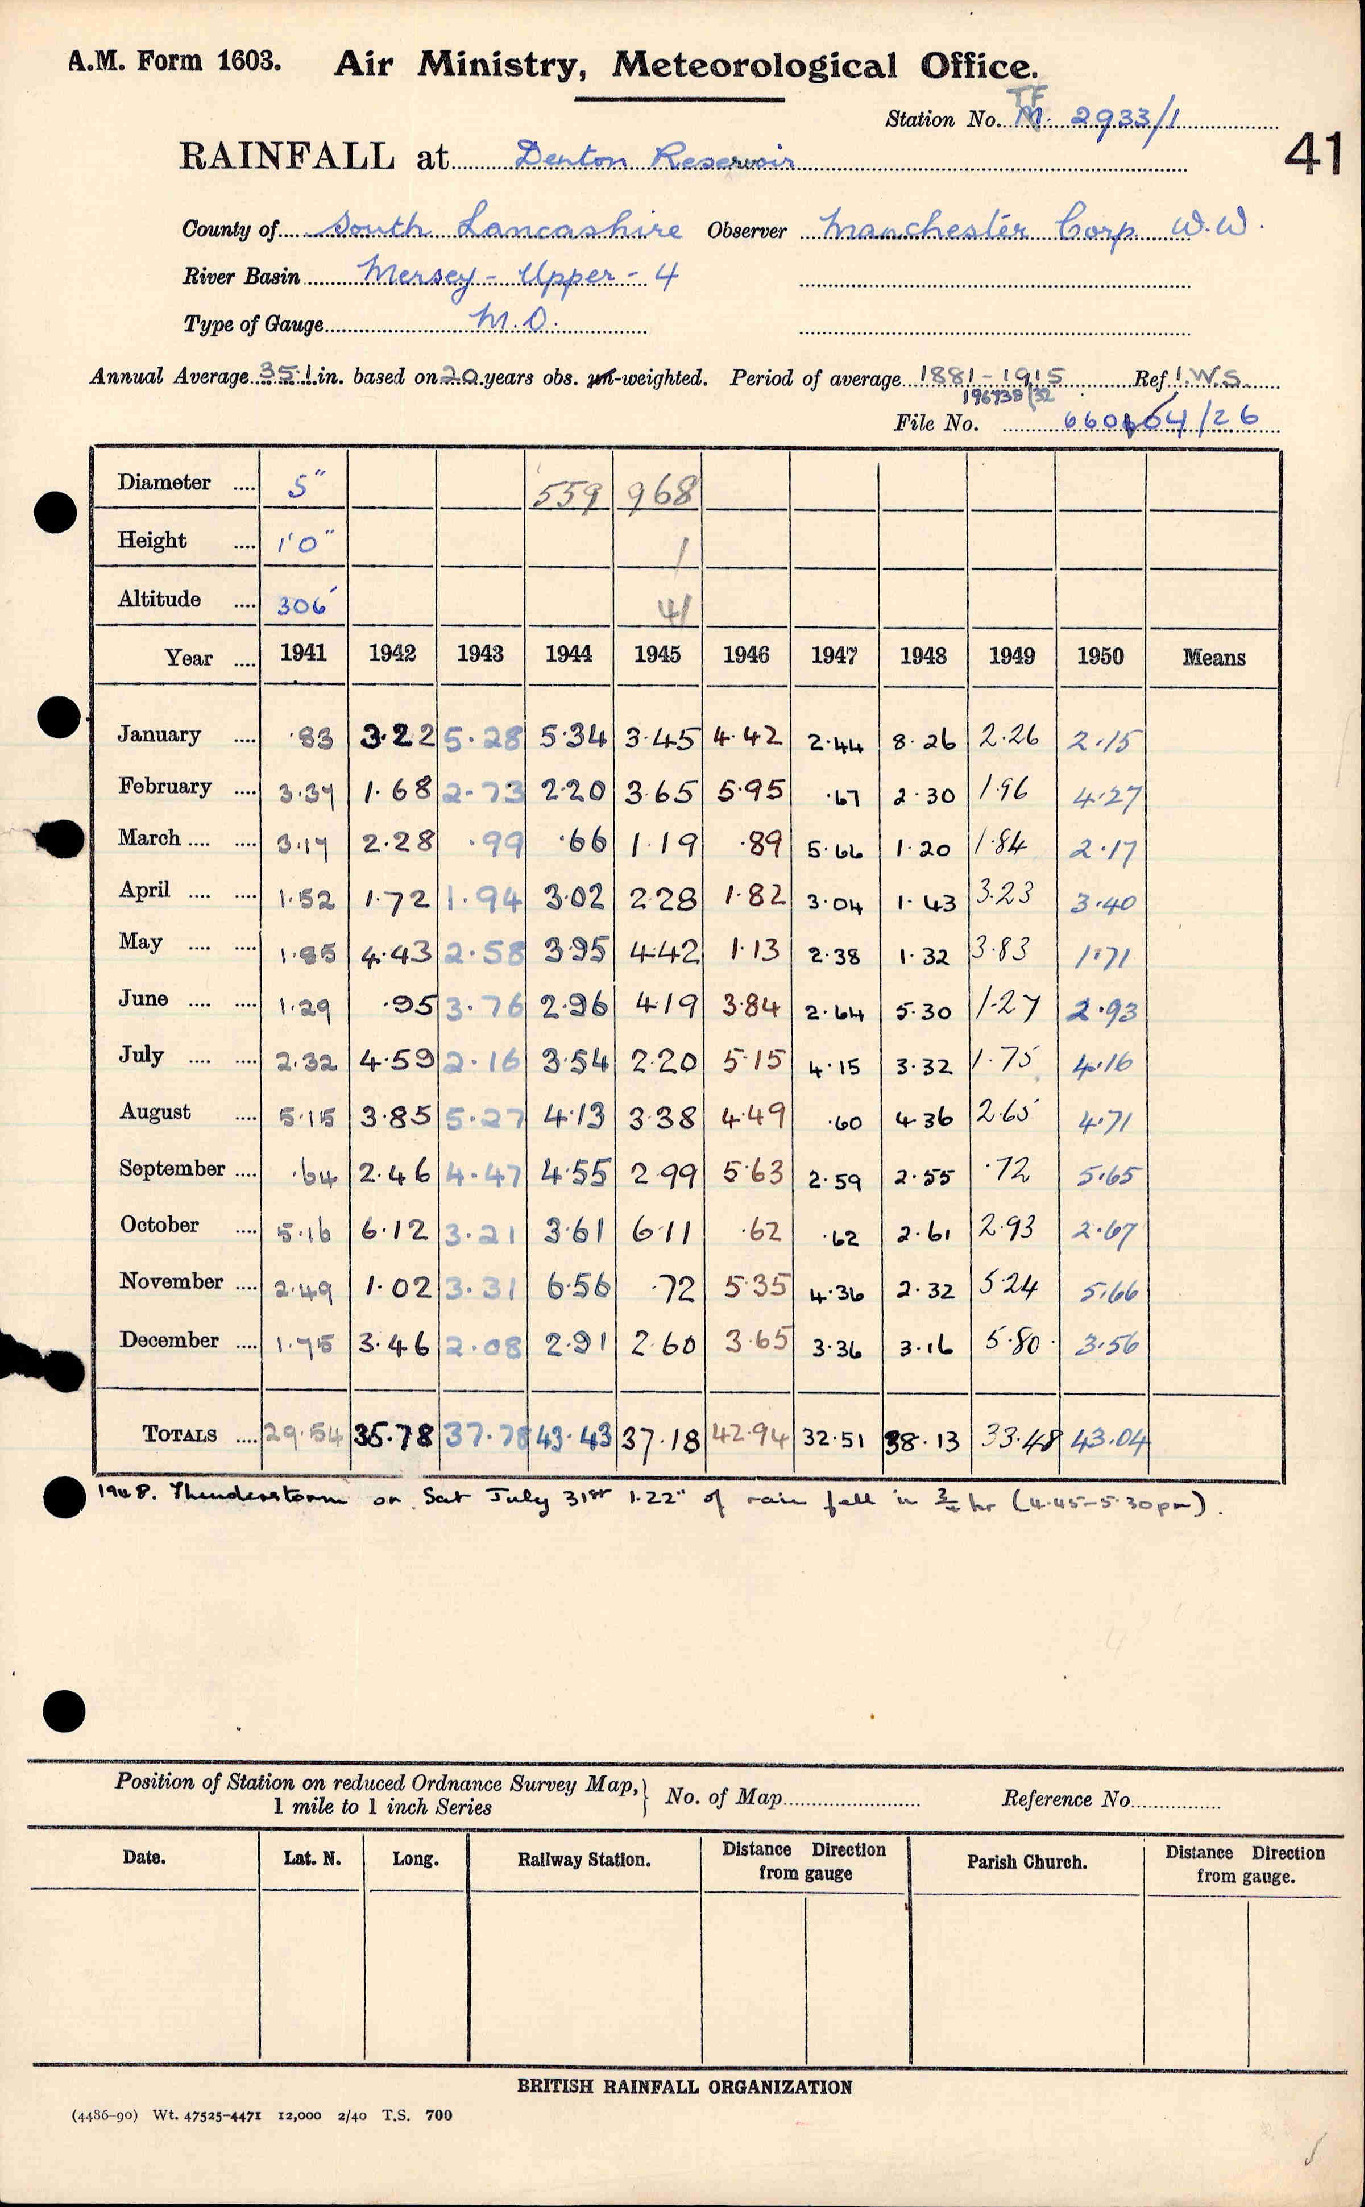 A.M. Form 1603. Air Ministry, Meteorological Office.
Station No. 2933/1
41
RAINFALL at Denton Reservoir
County of South Lancashire Observer Manchester Corp W.W.
River Basin Mersey - Upper - 4
Type of Gauge M.O.
Annual Average 35.1 in. based on 20 years obs. un-weighted. Period of average 1881-1915 Ref I.W.S.
File No.
Diameter .... 5" 559 968
Height .... 1'0" 1
Altitude .... 306' 41
Year .... 1941 1942 1943 1944 1945 1946 1947 1948 1949 1950 Means
January .... .83 3.22 5.28 5.34 3.45 4.42 2.44 8.26 2.26 2.15
February .... 3.37 1.68 2.73 2.20 3.65 5.95 .67 2.30 1.96 4.27
March .... .... 3.17 2.28 .99 .66 1.19 .89 5.66 1.20 1.84 2.17
April .... .... 1.52 1.72 1.94 3.02 2.28 1.82 3.04 1.43 3.23 3.40
May .... .... 1.85 4.43 2.58 3.95 4.42 1.13 2.38 1.32 3.83 1.71
June .... .... 1.29 .95 3.76 2.96 4.19 3.84 2.64 5.30 1.27 2.93
July .... .... 2.32 4.59 2.16 3.54 2.20 5.15 4.15 3.32 1.75 4.16
August .... 5.15 3.85 5.27 4.13 3.38 4.49 .60 4.36 2.65 4.71
September .... .64 2.46 4.47 4.55 2.99 5.63 2.59 2.55 .72 5.65
October .... 5.16 6.12 3.21 3.61 6.11 .62 .62 2.61 2.93 2.67
November .... 2.49 1.02 3.31 6.56 .72 5.35 4.36 2.32 5.24 5.66
December .... 1.75 3.46 2.08 2.91 2.60 3.65 3.36 3.16 5.80 3.56
TOTALS .... 29.54 35.78 37.78 43.43 37.18 42.94 32.51 38.13 33.48 43.04
1948. Thunderstorm on Sat July 31st 1.22" of rain fell in ¾ hr (4.45-5.30pm).
Position of Station on reduced Ordnance Survey Map, 1 mile to 1 inch Series } No. of Map Reference No.
Date. Lat. N. Long. Railway Station. Distance Direction from gauge Parish Church. Distance Direction from gauge.
BRITISH RAINFALL ORGANIZATION
(4486-90) Wt. 47525-4471 12,000 2/40 T.S. 700